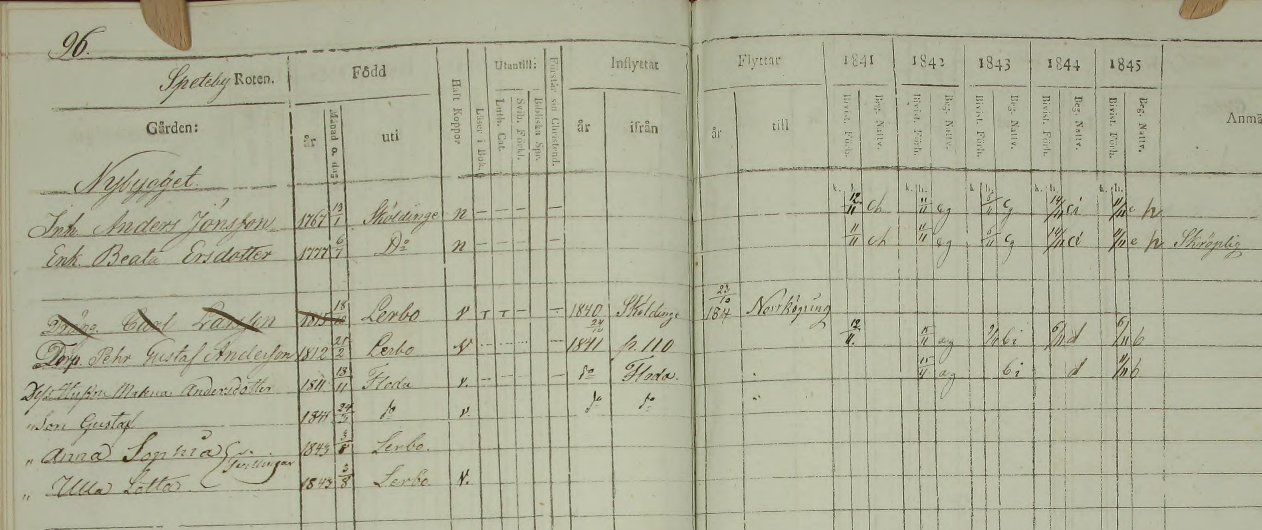 96.
Speteby Roten. Född Haft Koppor. Läser i Bok. Utantill: Luth. Cat. Svib. Förkl. Bibliska Spr. Förstår sin Christend. Inflyttat Flyttat 1841 1842 1843 1844 1845
Gården: år Månad o. dag uti år ifrån år till Bivist. Förh. Beg. Nattv. Bivist. Förh. Beg. Nattv. Bivist. Förh. Beg. Nattv. Bivist. Förh. Beg. Nattv. Bivist. Förh. Beg. Nattv. Anmä
Nybygget.
k. h. k. h. k. h. k. h. k. h.
Inh. Anders Jönsson 1767 13/1 Sköldinge n — — — — 12/11 ch 11/11 eg 5/11 cg 14/11 ci 11/11 e p
Enk. Beata Ersdotter 1777 6/7 Do n — — — — 11/11 ch 11/11 eg 5/11 cg 14/11 ci 11/11 e p Skröplig
Dräng. Carl Larsson 1815 18/10 Lerbo v 1840 Sköldinge 23/10 1841 Norrköping
Torp. Pehr Gustaf Anderson 1812 21/2 Lerbo v 24/10 1841 p. 110 12/11. 11/11 ag bi d 6/11 b
Hustru Andersdotter 1811 18/11 Floda v. do Floda. 15/11 ag bi d 11/11 b
" Son Gustaf 1841 24/3 do v do do
" Anna Sophia 1843 3/8 Lerbo.
Tvillingar
" Ulla Lotta 1843 3/8 Lerbo v.